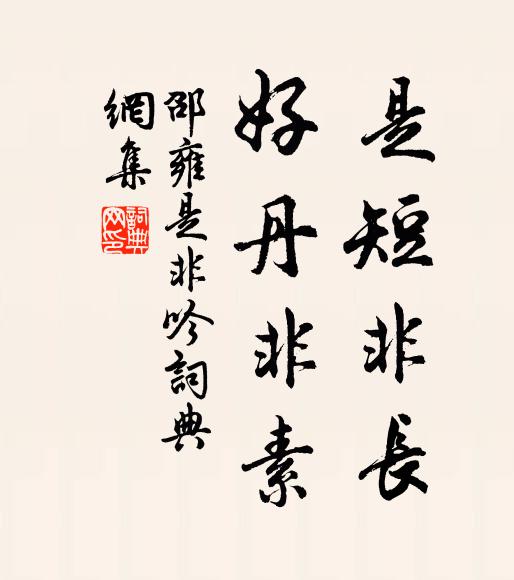 是短非長
好丹非素
邵雍是非吟詞典
網集
詞典
网印